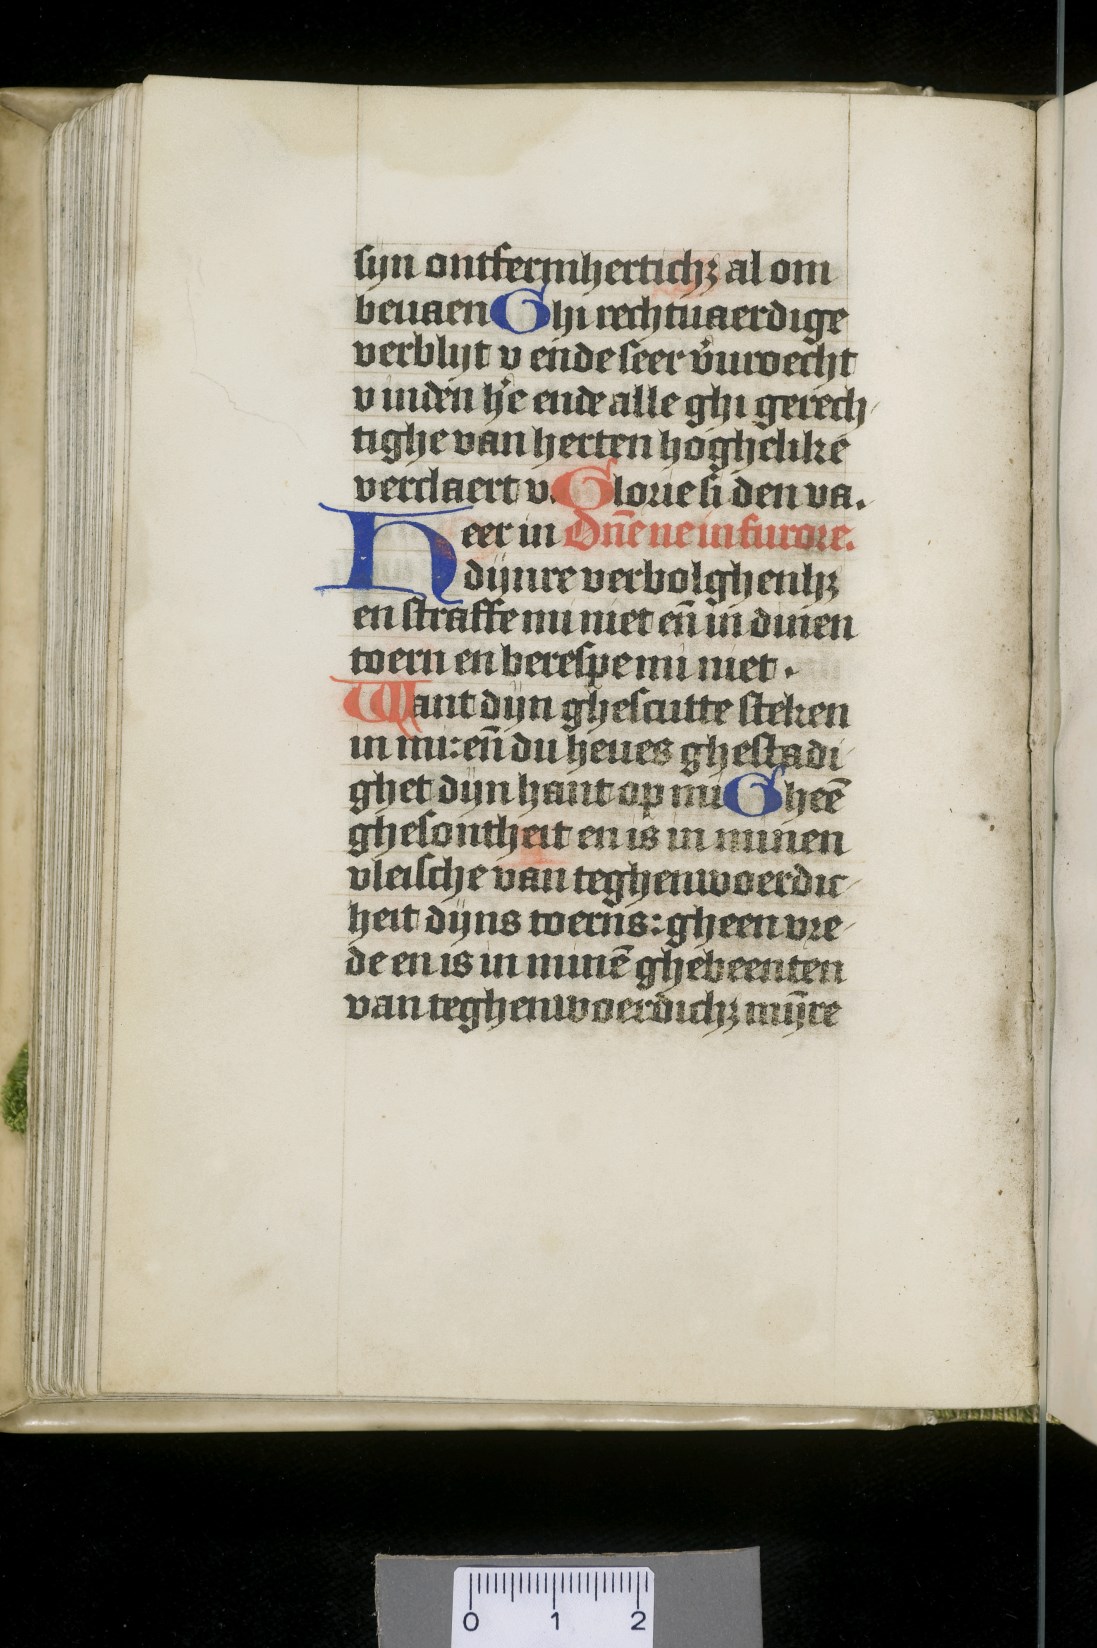 sijn ontfermherticħꝫ al om
beuaen Ghi rechtuaerdige
verblijt v ende seer v̓urvecht
v inden he̓ ende alle ghi gerech
tighe van herten hoghelikē
verclaert v. Glorie si den va.
Heer in Dn̄e ne in furore.
dijnre verbolghenhꝫ
en straffe mi niet en̄ in dinen
toern en berespe mi niet.
Want dijn ghescutte steken
in mi: en̄ du heues ghestadi
ghet dijn hant op mi Gheē
ghesontheit en is in minen
vleische van teghenwoerdic
heit dijns toerns: gheen vre
de en is in minē ghebeenten
van teghenwoerdichꝫ mijn̄re
0 1 2